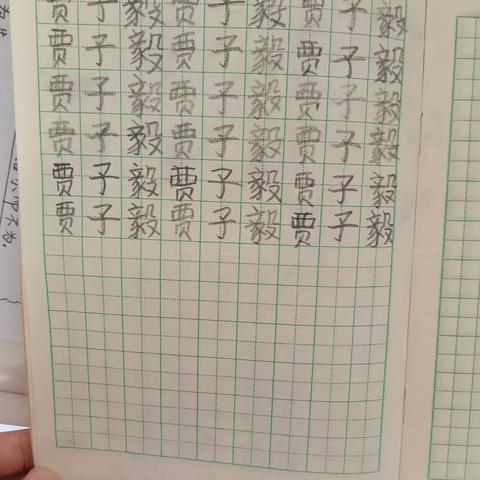 贾子毅贾子毅贾子毅
贾子毅贾子毅贾子毅
贾子毅贾子毅贾子毅
贾子毅贾子毅贾子毅
贾子毅贾子毅贾子毅
贾子毅贾子毅贾子毅